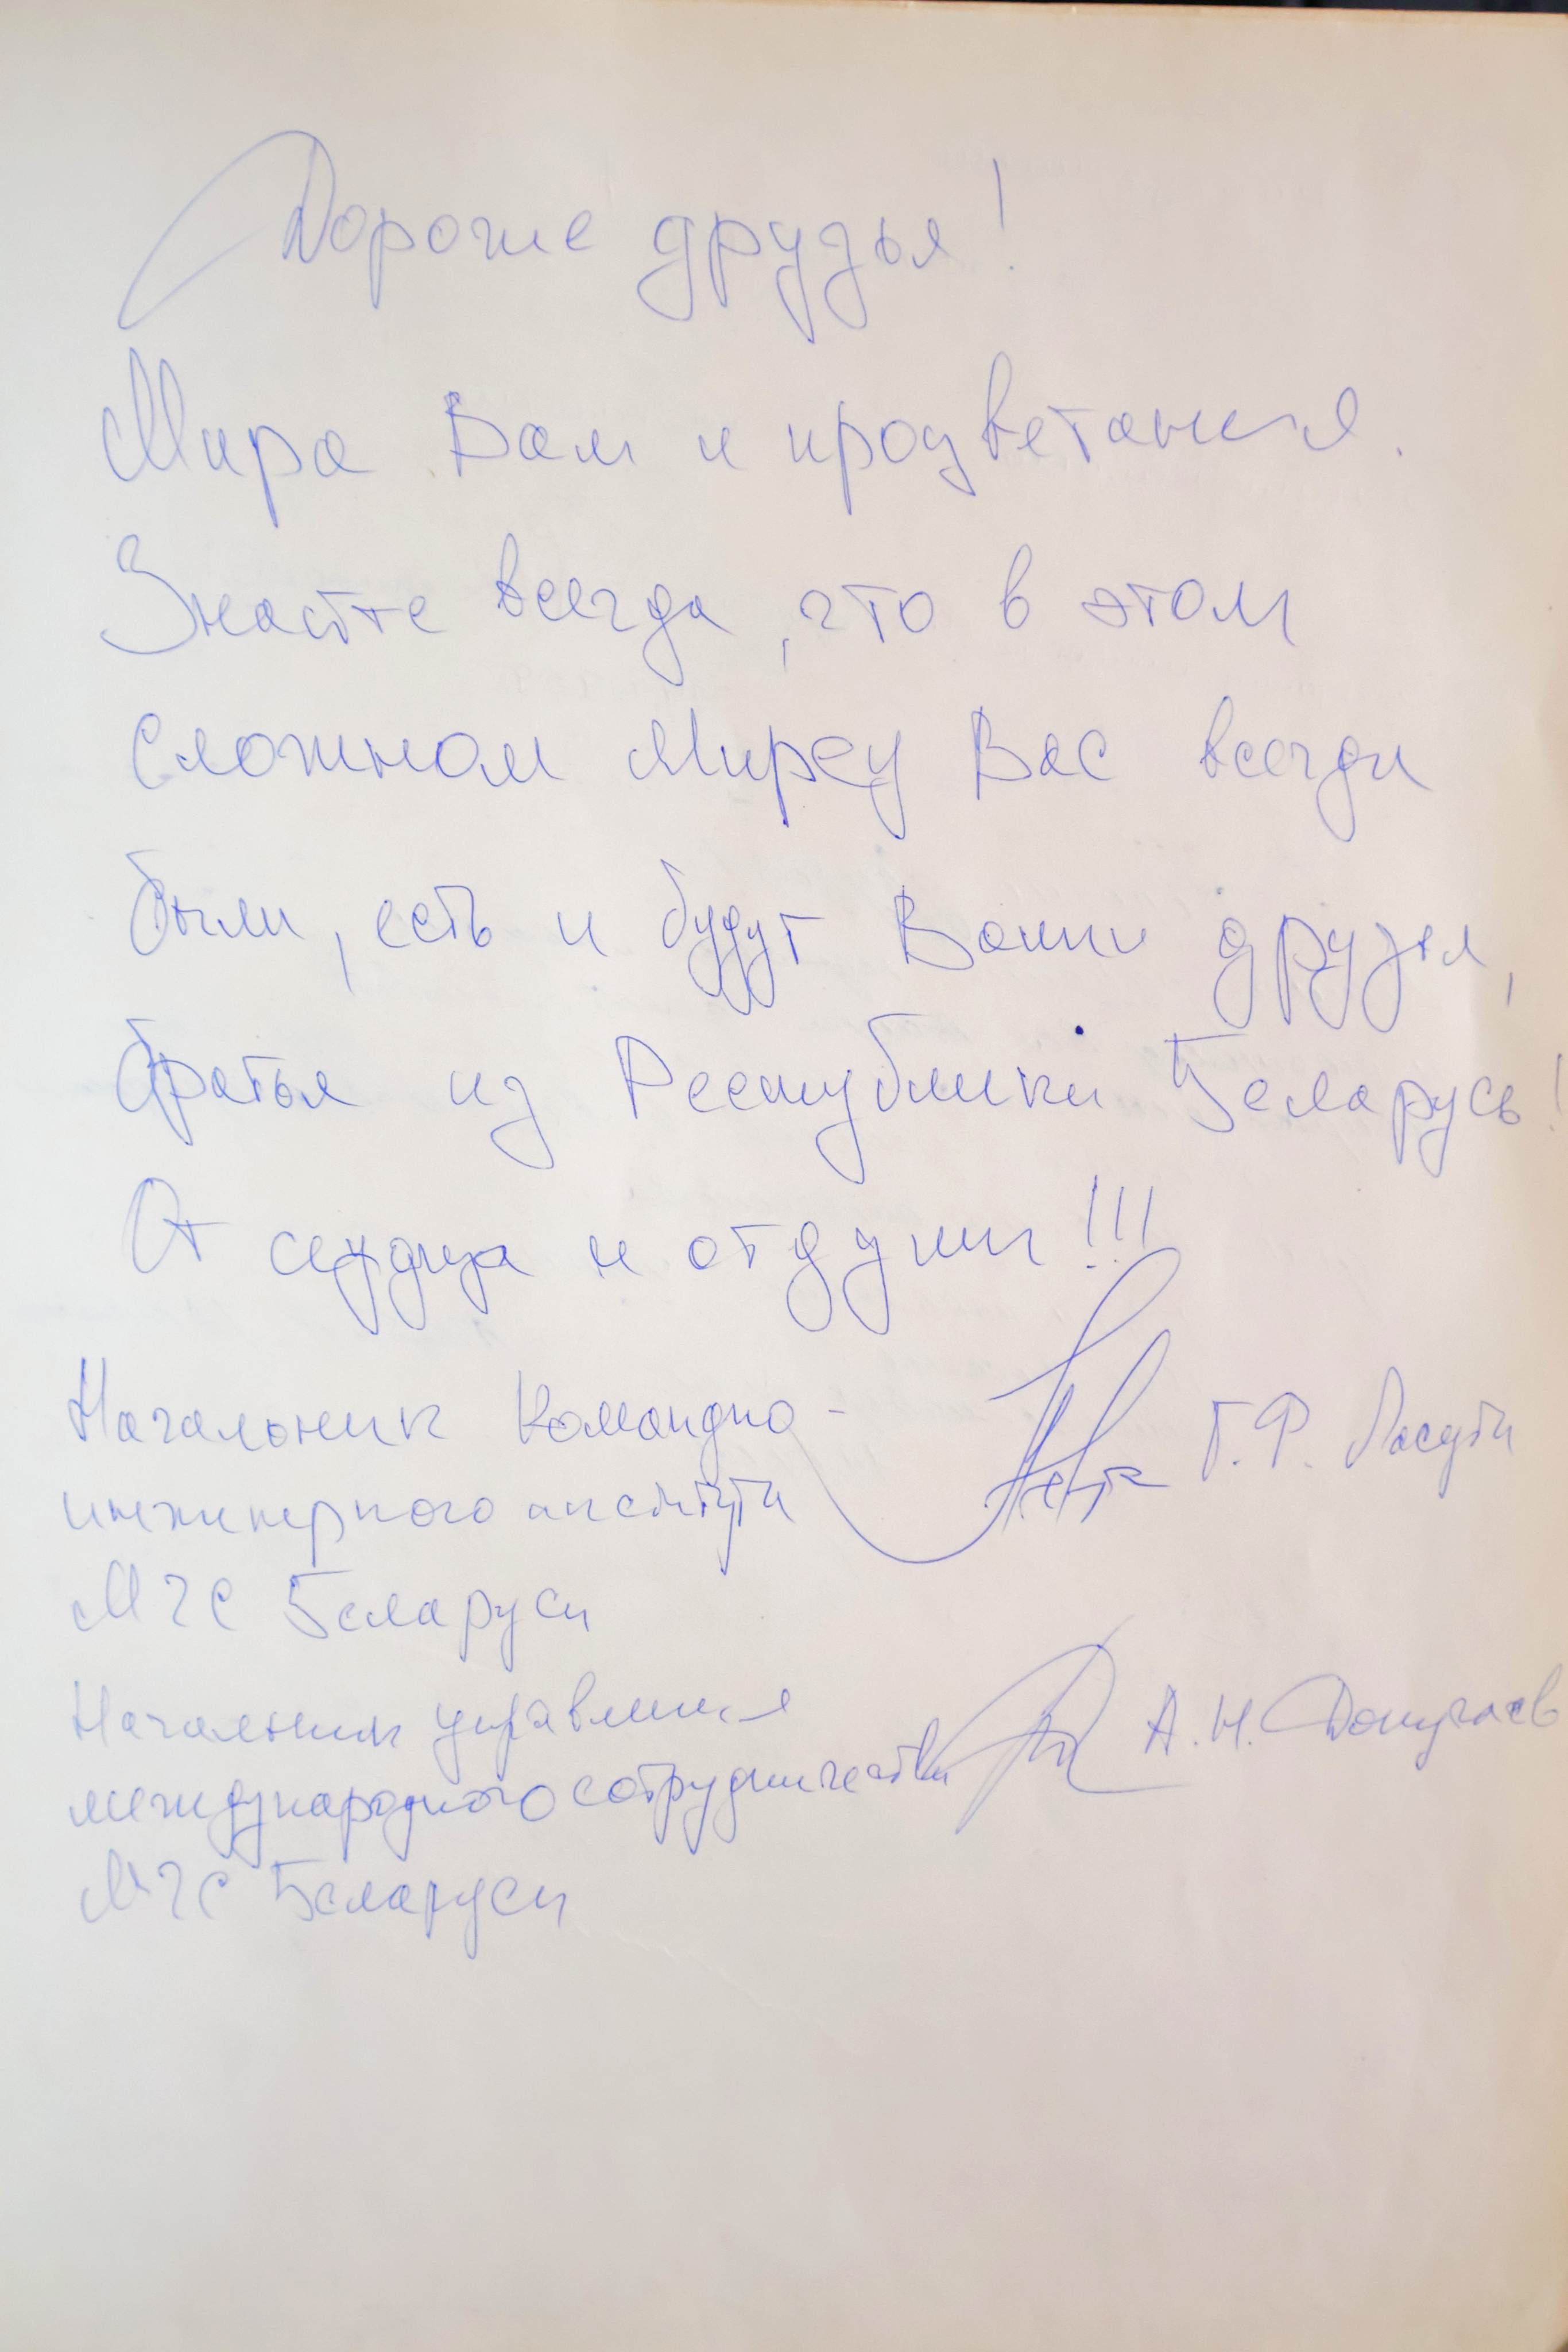 Дорогие друзья!
Мира Вам и процветания.
Знайте всегда, что в этом
сложном Мире у Вас всегда
были, есть и будут Ваши друзья,
братья из Республики Беларусь!
От сердца и от души!!!
Начальник Командно-
инженерного института Г.Ф. Ласута
МЧС Беларуси
Начальник управления
международного сотрудничества А.Н. Докучаев
МЧС Беларуси